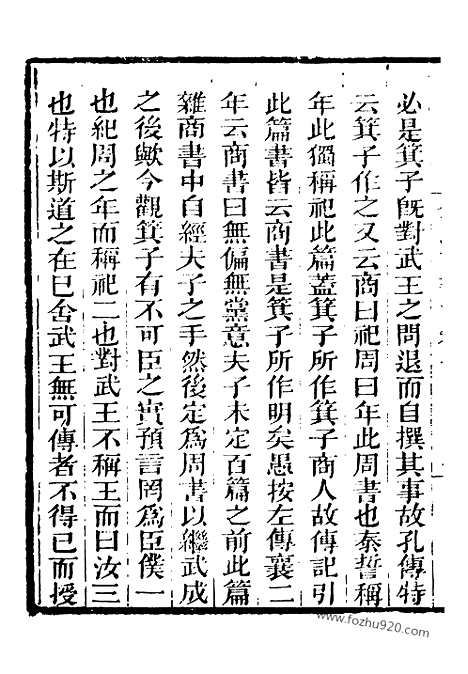 必是箕子旣對武王之問退而自撰其事故孔傳特
云箕子作之又云商曰祀周曰年此周書也泰誓稱
年此獨稱祀此篇蓋箕子所作箕子商人故傳記引
此篇書皆云商書是箕子所作明矣愚按左傳襄二
年云商書曰無偏無黨意夫子未定百篇之前此篇
雜商書中自經夫子之手然後定爲周書以繼武成
之後歟今觀箕子有不可臣之實預言罔爲臣僕一
也紀周之年而稱祀二也對武王不稱王而曰汝三
也特以斯道之在已舍武王無可傳者不得已而授
www.fozhu920.com